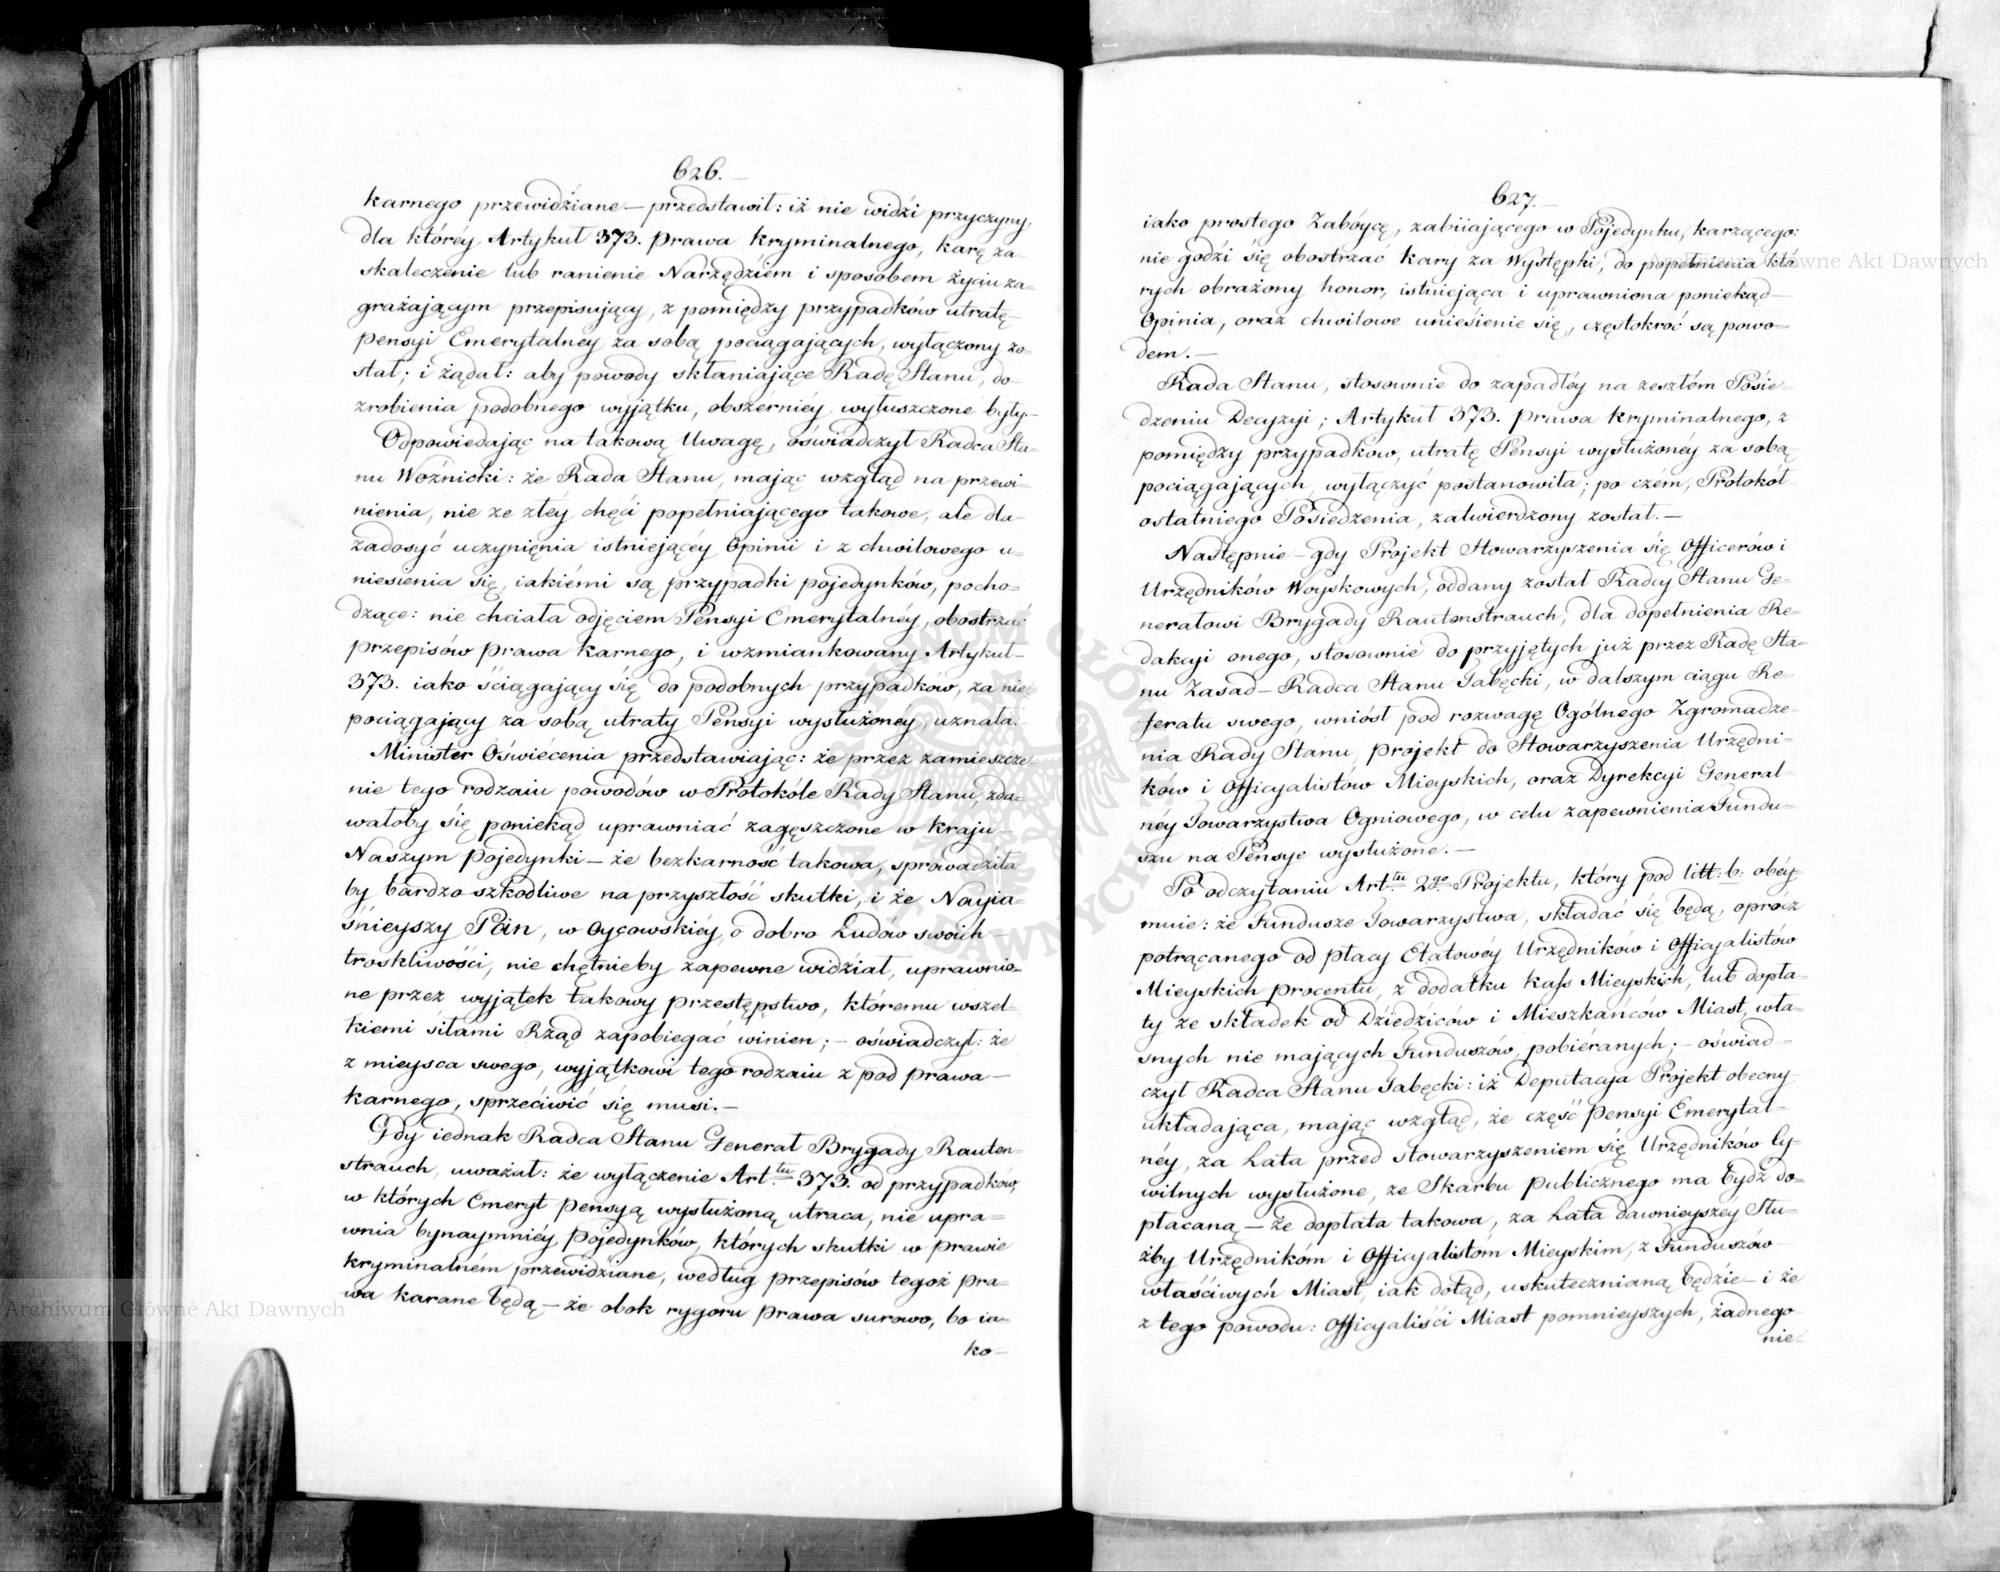 626.
karnego przewidźiane — przedstawił: iż nie widźi przyczyny,
dla któréy Artykuł 373. Prawa Kryminalnego, karę za
skaleczenie lub ranienie Narzędźiem i sposobem życiu za-
grażaiącym przepisuiący, z pomiędzy przypadków utratę
Pensyi Emerytalnéy za sobą pociągaiących, wyłączony zo-
stał; i żądał: aby powody skłaniaiące Radę Stanu, do
zrobienia podobnego wyjątku, obszerniéy wyłuszczone były. —
Odpowiedaiąc na takową Uwagę, oświadczył Radca Sta-
nu Woźnicki: że Rada Stanu, maiąc wzgląd na przewi-
nienia, nie ze złéy chęci popełniaiącego takowe, ale dla
zadosyć uczynięnia istnieiącéy Opinii i z chwilowego u-
niesienia się, iakiémi są przypadki pojedynków, pocho-
dzące: nie chciała odjęciem Pensyi Emerytalnéy, obostrzać
przepisów Prawa Karnego, i wzmiankowany Artykuł
373. iako ściągaiący się do podobnych przypadków, za nie
pociągaiący za sobą utraty Pensyi wysłużoney, uznała. —
Minister Oświécenia przedstawiaiąc: że przez zamieszcze-
nie tego rodzaiu powodów w Protokóle Rady Stanu, zda-
wałoby się poniekąd uprawniać zagęszczone w Kraju
Naszym Pojedynki — że bezkarność takowa, sprowadźiła
by bardzo szkodliwe na przyszłość skutki, i że Nayia-
śnieyszy Pan, w Oycowskiéy o dobro Ludów swoich
troskliwości, nie chętnieby zapewne widział, uprawnio-
ne przez wyjątek takowy przestępstwo, któremu wszel-
kiemi siłami Rząd zapobiegać winien; — oświadczył: że
z mieysca swego, wyjątkowi tego rodzaiu z pod Prawa
karnego, sprzeciwić się musi. —
Gdy iednak Radca Stanu Generał Brygady Rauten-
strauch, uważał: że wyłączenie Art.tu 373. od przypadków,
w których Emeryt Pensyą wysłużoną utraca, nie upra-
wnia bynaymniéy Pojedynków, których skutki w Prawie
kryminalném przewidźiane, według przepisów tegoż Pra-
wa karane będą — że obok rygoru Prawa surowo, bo ia-
ko
627.
iako prostego Zabóycę, zabiiającego w Pojedynku, karzącego:
nie godźi się obostrzać kary za Występki, do popełnienia któ-
rych obrażony honor, istnieiąca i uprawniona poniekąd
Opinia, oraz chwilowe uniesienie się, częstokroć są powo-
dem. —
Rada Stanu, stosownie do zapadłéy na zeszłém Posie-
dzeniu Decyzyi; Artykuł 373. Prawa Kryminalnego, z
pomiędzy przypadków, utratę Pensyi wysłużonéy za sobą
pociągaiących, wyłączyć postanowiła; po czém, Protokół
ostatniego Posiedzenia, zatwierdzony został. —
Następnie — gdy Projekt Stowarzyszenia się Officerów i
Urzędników Woyskowych, oddany został Radcy Stanu Ge-
nerałowi Brygady Rautenstrauch, dla dopełnienia Re-
dakcyi onego, stosownie do przyjętych już przez Radę Sta-
nu Zasad — Radca Stanu Tabęcki, w dalszym ciągu Re-
feratu swego, wniósł pod rozwagę Ogólnego Zgromadze-
nia Rady Stanu, Projekt do Stowarzyszenia Urzędni-
ków i Officyalistów Mieyskich, oraz Dyrekcyi General-
néy Towarzystwa Ogniowego, w celu zapewnienia Fundu-
szu na Pensye wysłużone. —
Po odczytaniu Art.tu 2go Projektu, który pod litt: b: obéy-
muie: że Fundusze Towarzystwa, składać się będą, oprócz
potrącanego od płacy Etatowéy Urzędników i Officyalistów
Mieyskich procentu, z dodatku Kass Mieyskich, lub dopła-
ty ze składek od Dźiedźiców i Mieszkańców Miast, wła-
snych nie maiących Funduszów, pobiéranych; — oświad-
czył Radca Stanu Tabęcki: iż Deputacya Projekt obecny
układaiąca, maiąc wzgląd, że część Pensyi Emerytal-
néy, za Lata przed stowarzyszeniem się Urzędników Cy-
wilnych wysłużone, ze Skarbu Publicznego ma bydź do-
płacaną — że dopłata takowa, za Lata dawnieyszey Słu-
żby Urzędnikóm i Officyalistóm Mieyskim, z Funduszów
właściwych Miast, iak dotąd, uskutecznianą będźie — i że
z tego powodu: Officyaliści Miast pomnieyszych, żadnego
nie
Archiwum Główne Akt Dawnych
Archiwum Główne Akt Dawnych
ARCHIWUM GŁÓWNE AKT DAWNYCH